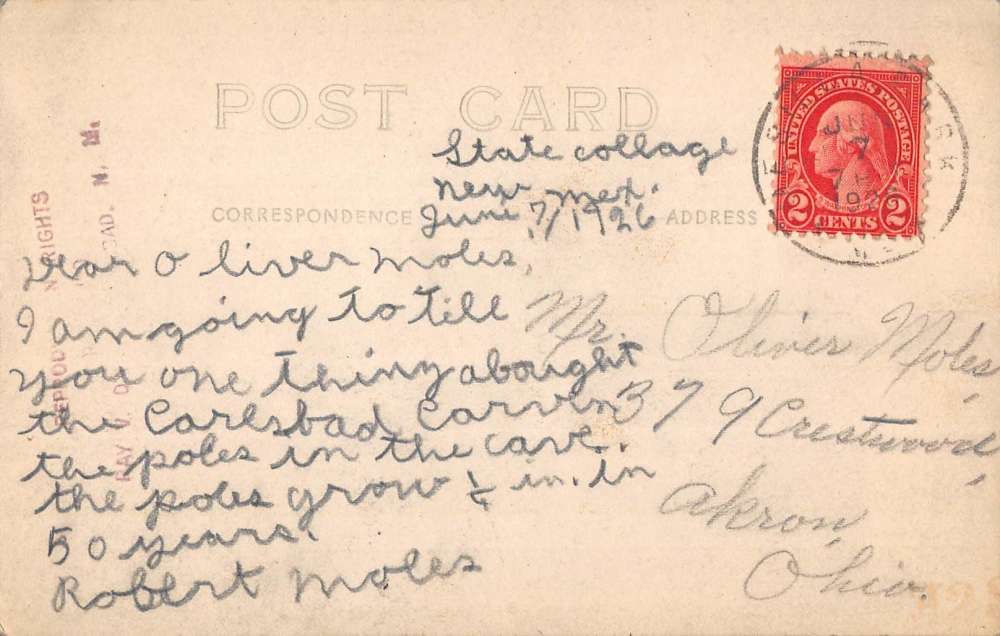 POST CARD
CORRESPONDENCE
ADDRESS
State collage
New Mex.
June 7/1926
Dear Oliver Moles,
I am going to till
you one thing abought
the Carlsbad Carven
the poles in the cave.
the poles grow ¼ in. in
50 years.
Robert Moles
Mr. Oliver Moles,
379 Crestwood,
Akron,
Ohio.
UNITED STATES POSTAGE
2 CENTS 2
JUN
7
1926
RIGHTS
RAY V. D
BAD. N. M.